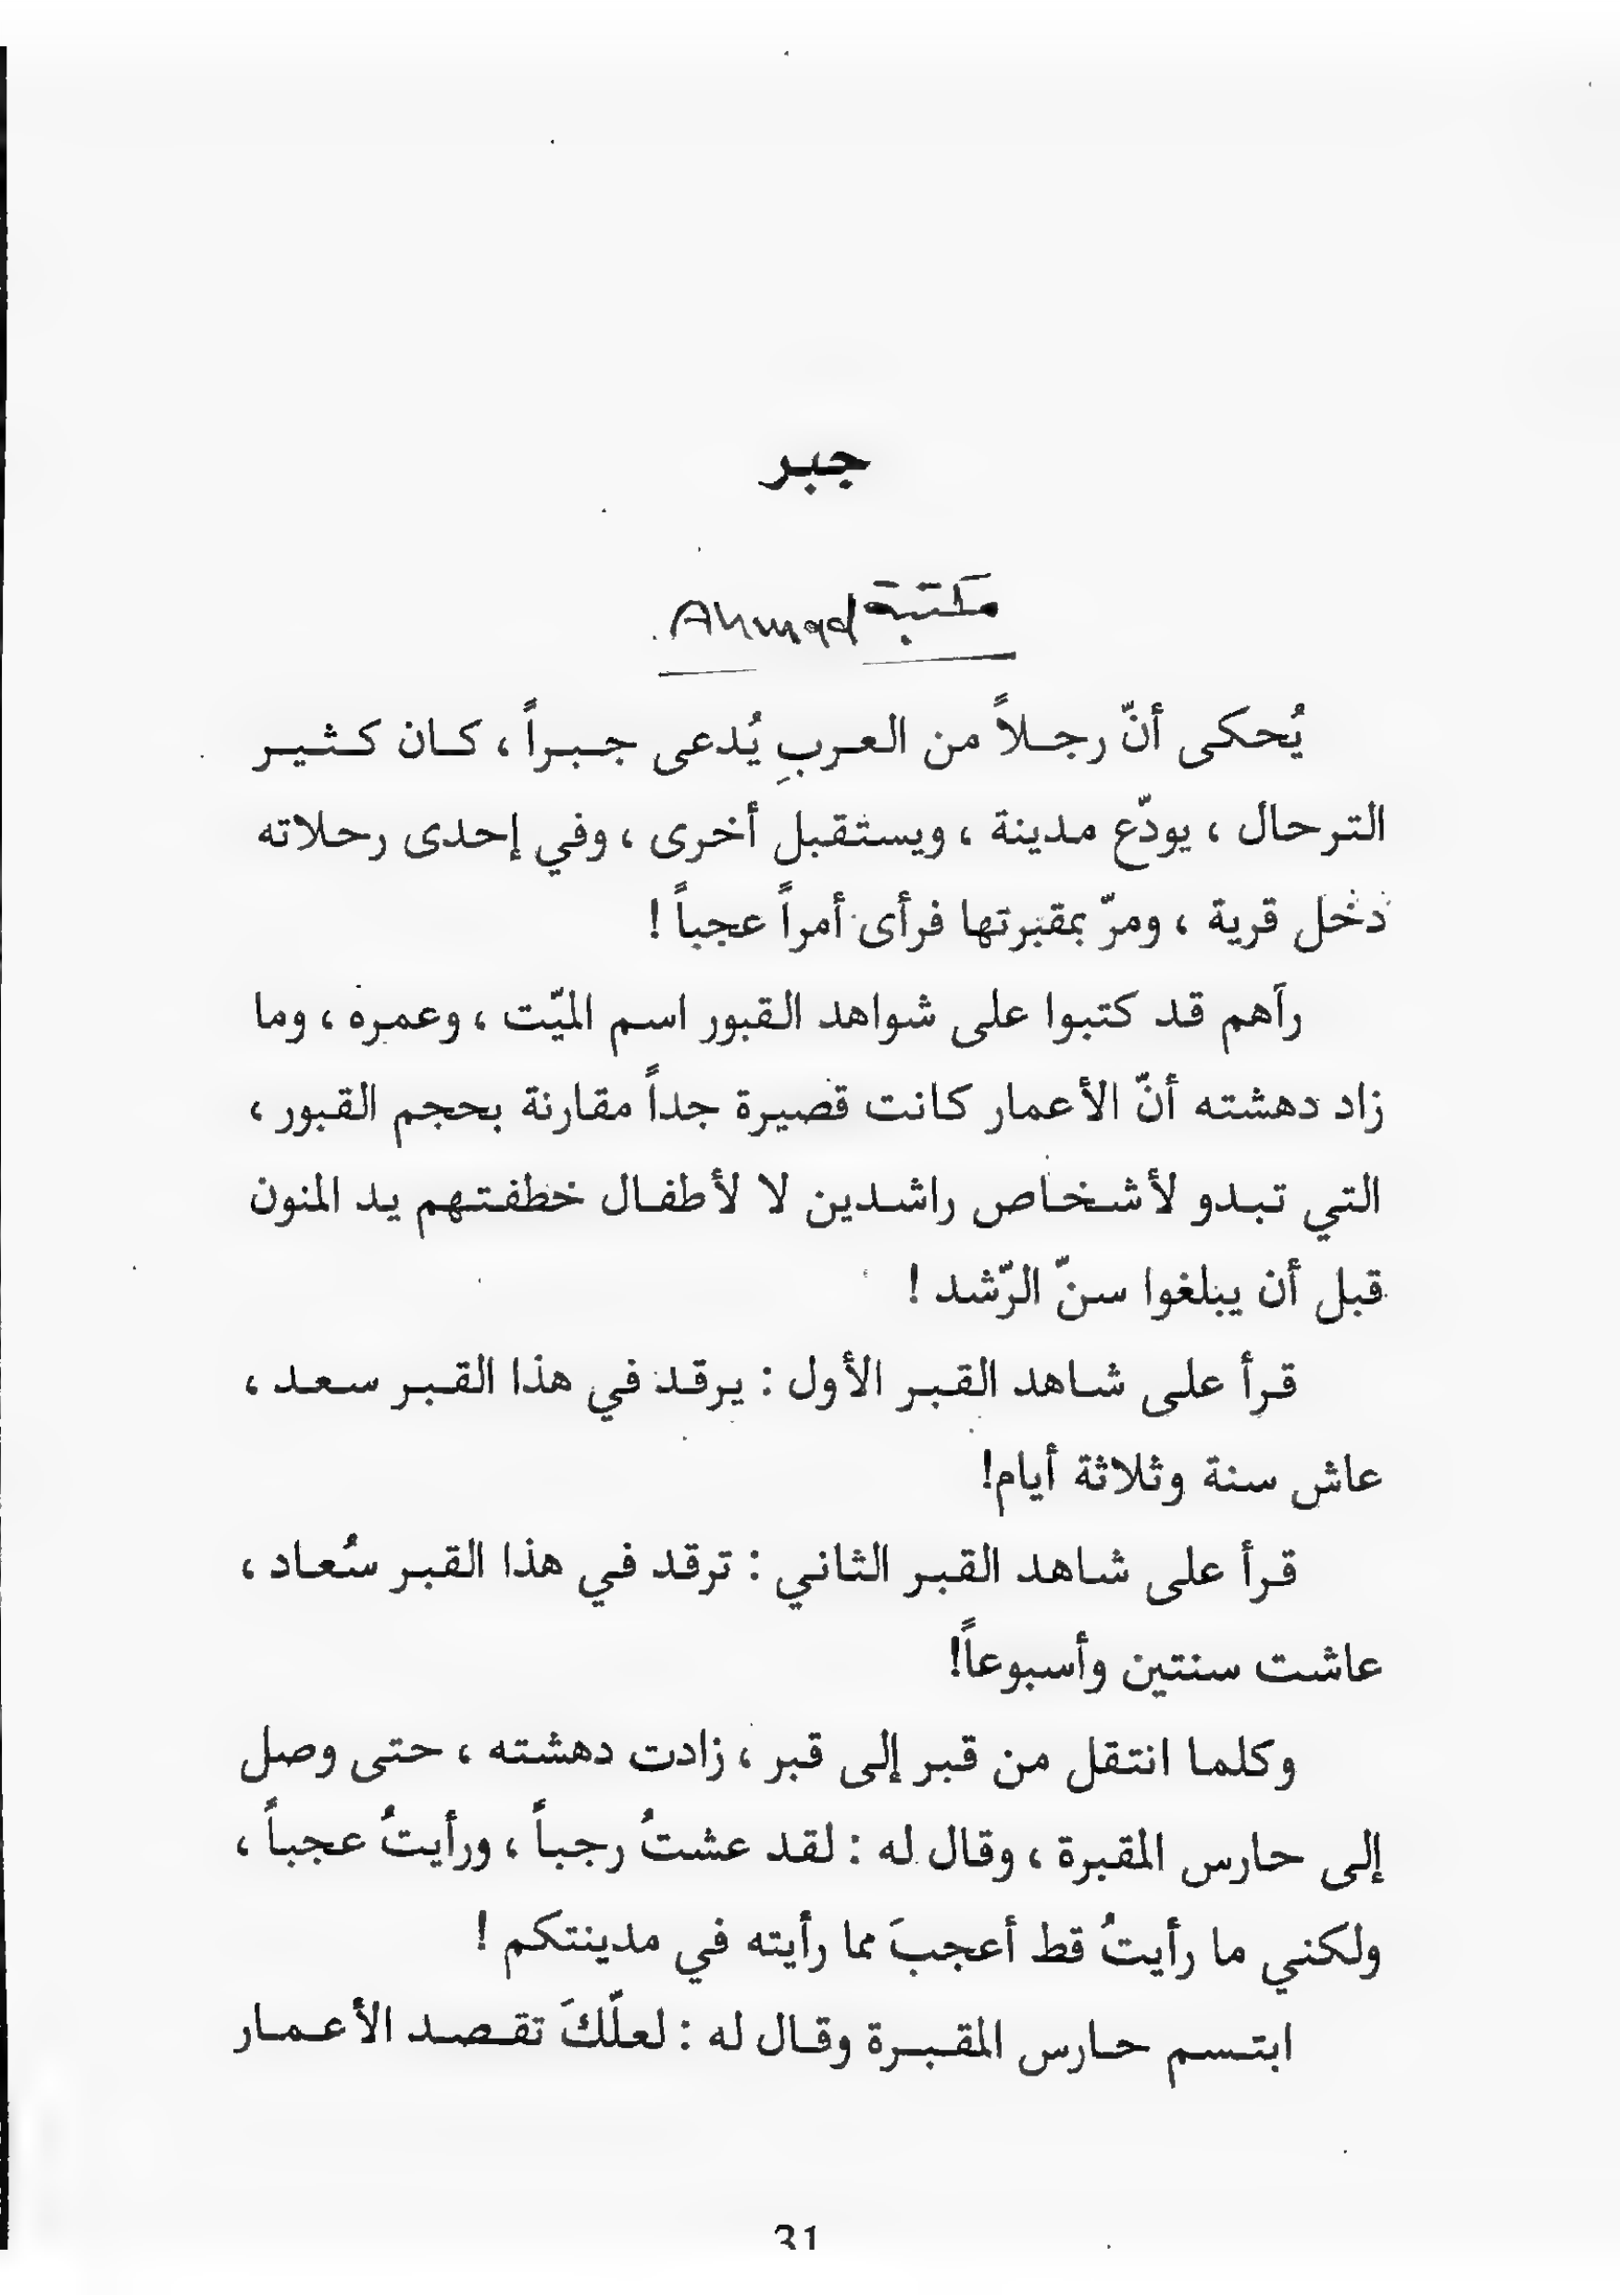 جبر
مكتبة Ahmad
يُحكى أنّ رجلاً من العربِ يُدعى جبراً ، كان كثير
الترحال ، يودّع مدينة ، ويستقبل أخرى ، وفي إحدى رحلاته
دخل قرية ، ومرّ بمقبرتها فرأى أمراً عجباً !
رآهم قد كتبوا على شواهد القبور اسم الميّت ، وعمره ، وما
زاد دهشته أنّ الأعمار كانت قصيرة جداً مقارنة بحجم القبور ،
التي تبدو لأشخاص راشدين لا لأطفال خطفتهم يد المنون
قبل أن يبلغوا سنّ الرّشد !
قرأ على شاهد القبر الأول : يرقد في هذا القبر سعد ،
عاش سنة وثلاثة أيام!
قرأ على شاهد القبر الثاني : ترقد في هذا القبر سُعاد ،
عاشت سنتين وأسبوعاً!
وكلما انتقل من قبر إلى قبر ، زادت دهشته ، حتى وصل
إلى حارس المقبرة ، وقال له : لقد عشتُ رجباً ، ورأيتُ عجباً ،
ولكني ما رأيتُ قط أعجبَ مما رأيته في مدينتكم !
ابتسم حارس المقبرة وقال له : لعلّكَ تقصد الأعمار
31